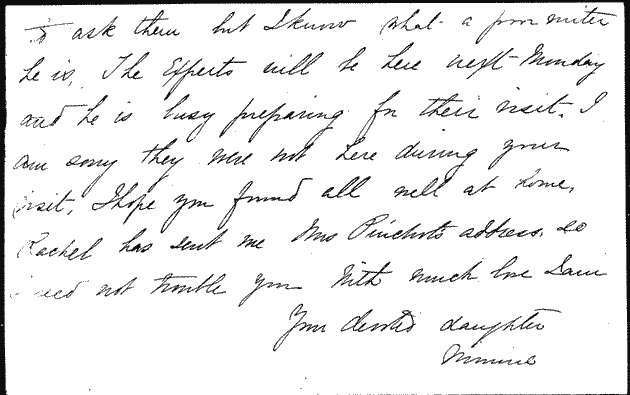 to ask them but I know what a poor writer
he is. The Experts will be here next Monday
and he is busy preparing for their visit. I
am sorry they were not here during your
visit. I hope you found all well at home.
Rachel has sent me Mrs Pinchots address, so
need not trouble you With much love I am
Your devoted daughter